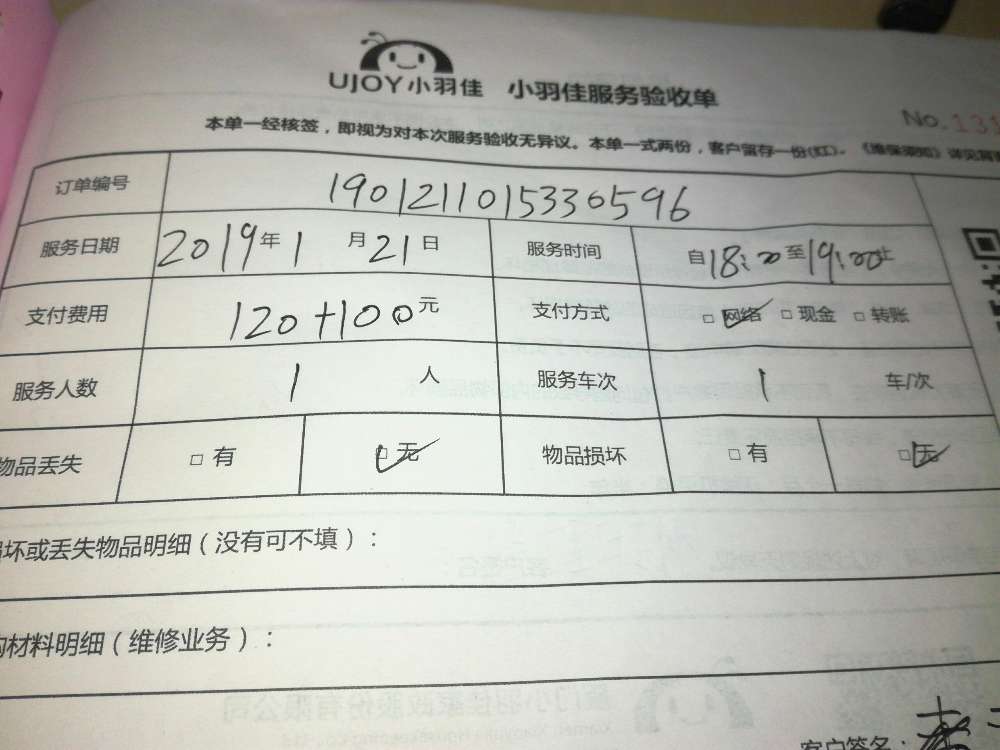 UJOY小羽佳 小羽佳服务验收单
No.131
本单一经核签，即视为对本次服务验收无异议。本单一式两份，客户留存一份(红)。《维保须知》详见背
订单编号 1901211015330596
服务日期 2019年1月21日 服务时间 自18:00至19:00止
支付费用 120+100元 支付方式 □网络 □现金 □转账
服务人数 1人 服务车次 1车/次
物品丢失 □有 □无 物品损坏 □有 □无
坏或丢失物品明细（没有可不填）：
材料明细（维修业务）：
客户签名：